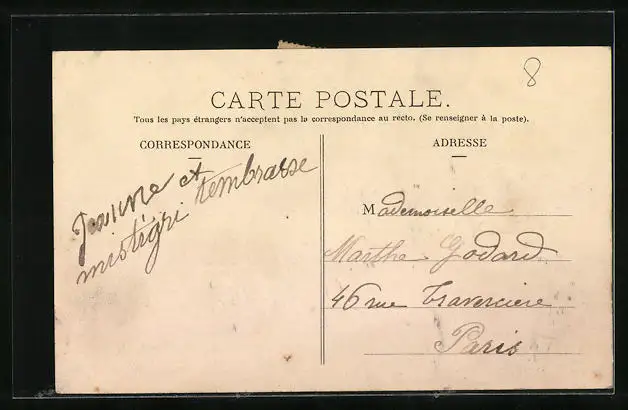 8
CARTE POSTALE.
Tous les pays étrangers n'acceptent pas la correspondance au recto. (Se renseigner à la poste).
CORRESPONDANCE
Jeanne et
mistigri t'embrasse
ADRESSE
Mademoiselle
Marthe Godard
46 rue Traverciere
Paris